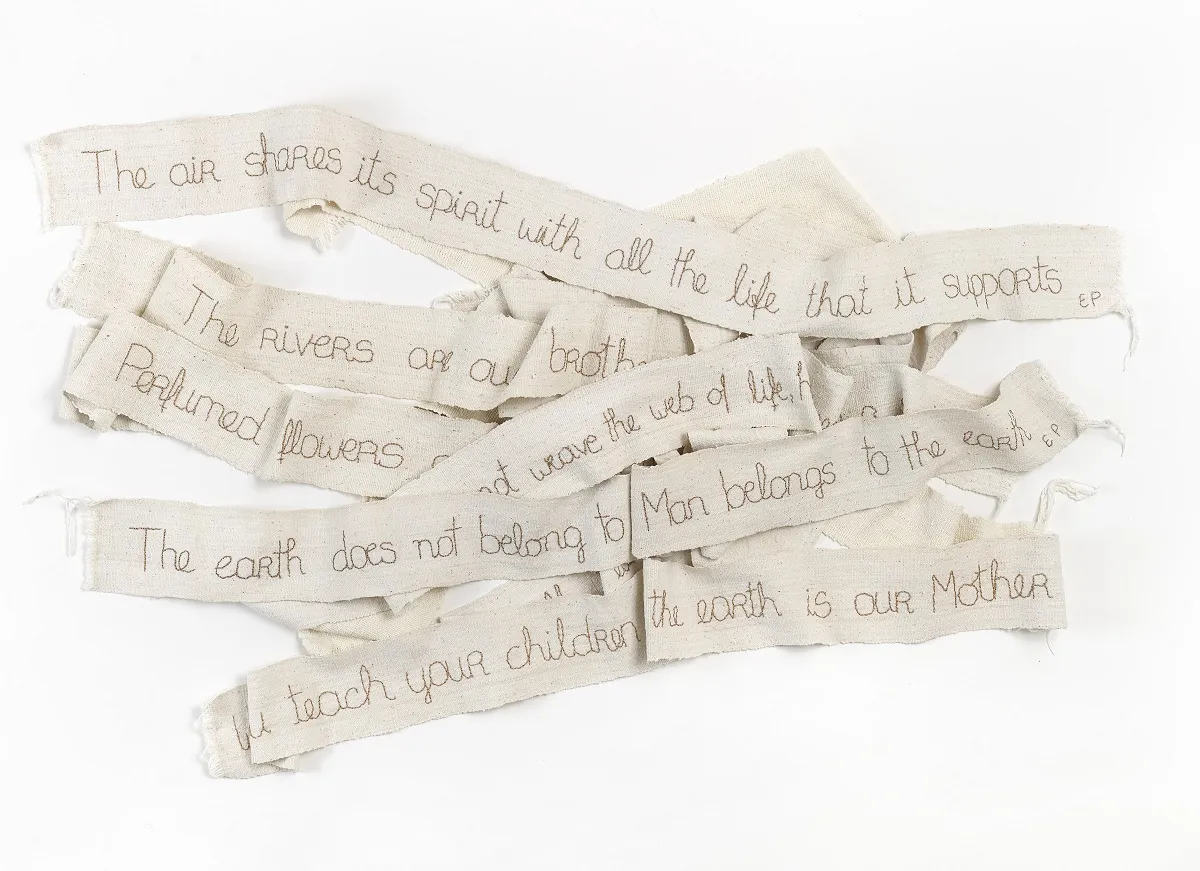 The air shares its spirit with all the life that it supports EP
The rivers are ou broth
Perfumed flowers
not weave the web of life, h
The earth does not belong to Man belongs to the earth EP
teach your children the earth is our Mother